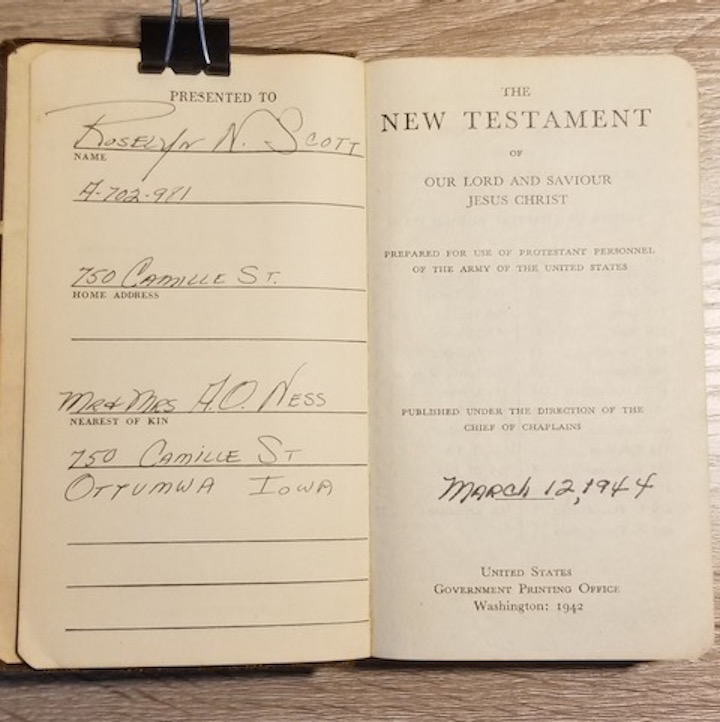 PRESENTED TO
Roselyn N. Scott
NAME
A-702-981
750 Camille St.
HOME ADDRESS
Mr & Mrs A.O. Ness
NEAREST OF KIN
750 Camille St
Ottumwa Iowa
THE
NEW TESTAMENT
OF
OUR LORD AND SAVIOUR
JESUS CHRIST
PREPARED FOR USE OF PROTESTANT PERSONNEL
OF THE ARMY OF THE UNITED STATES
PUBLISHED UNDER THE DIRECTION OF THE
CHIEF OF CHAPLAINS
March 12, 1944
United States
Government Printing Office
Washington: 1942